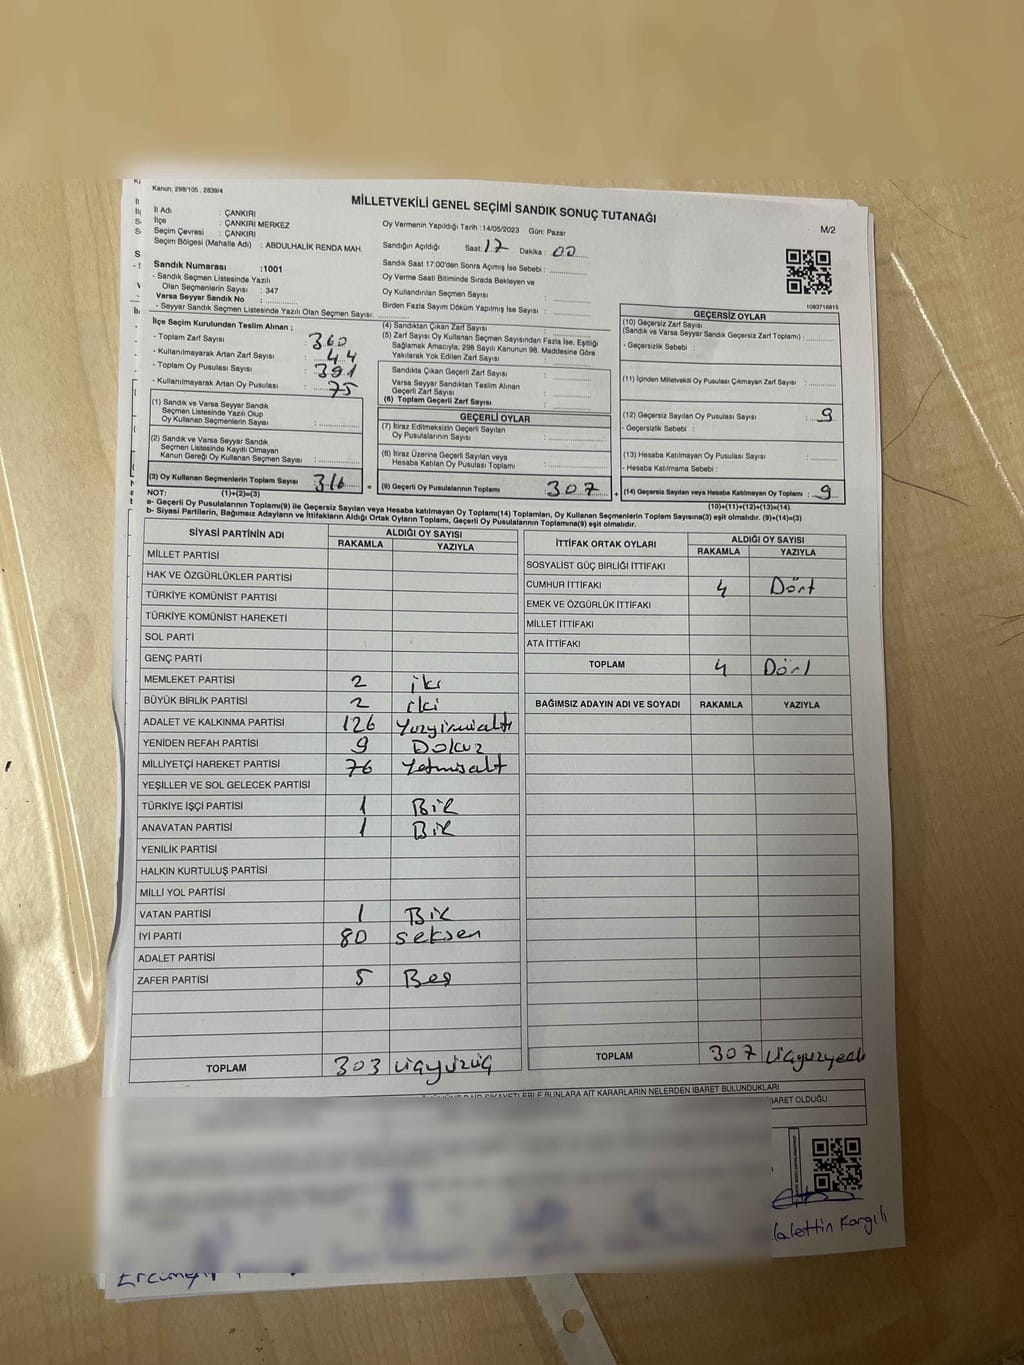 Kanun, 298/105 , 2839/4
MİLLETVEKİLİ GENEL SEÇİMİ SANDIK SONUÇ TUTANAĞI
M/2
İl Adı : ÇANKIRI
İlçe : ÇANKIRI MERKEZ
Seçim Çevresi : ÇANKIRI
Seçim Bölgesi (Mahalle Adı) : ABDULHALİK RENDA MAH.
Sandık Numarası :1001
- Sandık Seçmen Listesinde Yazılı
Olan Seçmenlerin Sayısı : 347
Varsa Seyyar Sandık No :
- Seyyar Sandık Seçmen Listesinde Yazılı Olan Seçmen Sayısı:
Oy Vermenin Yapıldığı Tarih :14/05/2023 Gün: Pazar
Sandığın Açıldığı Saat: 17 Dakika : 00
Sandık Saat 17:00'den Sonra Açımış İse Sebebi :
Oy Verme Saati Bitiminde Sırada Bekleyen ve
Oy Kullandırılan Seçmen Sayısı :
Birden Fazla Sayım Döküm Yapılmış İse Sayısı :
1083716815
İlçe Seçim Kurulundan Teslim Alınan ;
- Toplam Zarf Sayısı : 360
- Kullanılmayarak Artan Zarf Sayısı : 44
- Toplam Oy Pusulası Sayısı : 391
- Kullanılmayarak Artan Oy Pusulası : 75
(1) Sandık ve Varsa Seyyar Sandık
Seçmen Listesinde Yazılı Olup
Oy Kullanan Seçmenlerin Sayısı :
(2) Sandık ve Varsa Seyyar Sandık
Seçmen Listesinde Kayıtlı Olmayan
Kanun Gereği Oy Kullanan Seçmen Sayısı :
(3) Oy Kullanan Seçmenlerin Toplam Sayısı 316
(4) Sandıktan Çıkan Zarf Sayısı :
(5) Zarf Sayısı Oy Kullanan Seçmen Sayısından Fazla İse, Eşitliği
Sağlamak Amacıyla; 298 Sayılı Kanunun 98. Maddesine Göre
Yakılarak Yok Edilen Zarf Sayısı :
Sandıkta Çıkan Geçerli Zarf Sayısı :
Varsa Seyyar Sandıktan Teslim Alınan
Geçerli Zarf Sayısı :
(6) Toplam Geçerli Zarf Sayısı :
GEÇERLİ OYLAR
(7) İtiraz Edilmeksizin Geçerli Sayılan
Oy Pusulalarının Sayısı :
(8) İtiraz Üzerine Geçerli Sayılan veya
Hesaba Katılan Oy Pusulası Toplamı :
= (9) Geçerli Oy Pusulalarının Toplamı : 307
GEÇERSİZ OYLAR
(10) Geçersiz Zarf Sayısı
(Sandık ve Varsa Seyyar Sandık Geçersiz Zarf Toplamı) :
- Geçersizlik Sebebi :
(11) İçinden Milletvekili Oy Pusulası Çıkmayan Zarf Sayısı :
(12) Geçersiz Sayılan Oy Pusulası Sayısı : 9
- Geçersizlik Sebebi :
(13) Hesaba Katılmayan Oy Pusulası Sayısı :
- Hesaba Katılmama Sebebi :
+ (14) Geçersiz Sayılan veya Hesaba Katılmayan Oy Toplamı : 9
NOT: (1)+(2)=(3)
(10)+(11)+(12)+(13)=(14)
a- Geçerli Oy Pusulalarının Toplamı(9) ile Geçersiz Sayılan veya Hesaba katılmayan Oy Toplamı(14) Toplamları, Oy Kullanan Seçmenlerin Toplam Sayısına(3) eşit olmalıdır. (9)+(14)=(3)
b- Siyasi Partilerin, Bağımsız Adayların ve İttifakların Aldığı Ortak Oyların Toplamı, Geçerli Oy Pusulalarının Toplamına(9) eşit olmalıdır.
SİYASİ PARTİNİN ADI ALDIĞI OY SAYISI
RAKAMLA YAZIYLA
MİLLET PARTİSİ
HAK VE ÖZGÜRLÜKLER PARTİSİ
TÜRKİYE KOMÜNİST PARTİSİ
TÜRKİYE KOMÜNİST HAREKETİ
SOL PARTİ
GENÇ PARTİ
MEMLEKET PARTİSİ 2 iki
BÜYÜK BİRLİK PARTİSİ 2 iki
ADALET VE KALKINMA PARTİSİ 126 Yuzyirmialtı
YENİDEN REFAH PARTİSİ 9 Dokuz
MİLLİYETÇİ HAREKET PARTİSİ 76 Yetmisaltı
YEŞİLLER VE SOL GELECEK PARTİSİ
TÜRKİYE İŞÇİ PARTİSİ 1 Bir
ANAVATAN PARTİSİ 1 Bir
YENİLİK PARTİSİ
HALKIN KURTULUŞ PARTİSİ
MİLLİ YOL PARTİSİ
VATAN PARTİSİ 1 Bir
İYİ PARTİ 80 seksen
ADALET PARTİSİ
ZAFER PARTİSİ 5 Beş
TOPLAM 303 üçyüzüç
İTTİFAK ORTAK OYLARI ALDIĞI OY SAYISI
RAKAMLA YAZIYLA
SOSYALİST GÜÇ BİRLİĞİ İTTİFAKI
CUMHUR İTTİFAKI 4 Dört
EMEK VE ÖZGÜRLÜK İTTİFAKI
MİLLET İTTİFAKI
ATA İTTİFAKI
TOPLAM 4 Dört
BAĞIMSIZ ADAYIN ADI VE SOYADI RAKAMLA YAZIYLA
TOPLAM 307 üçyuzyedi
ŞİKAYETLERLE BUNLARA AİT KARARLARIN NELERDEN İBARET BULUNDUKLARI
BARET OLDUĞU